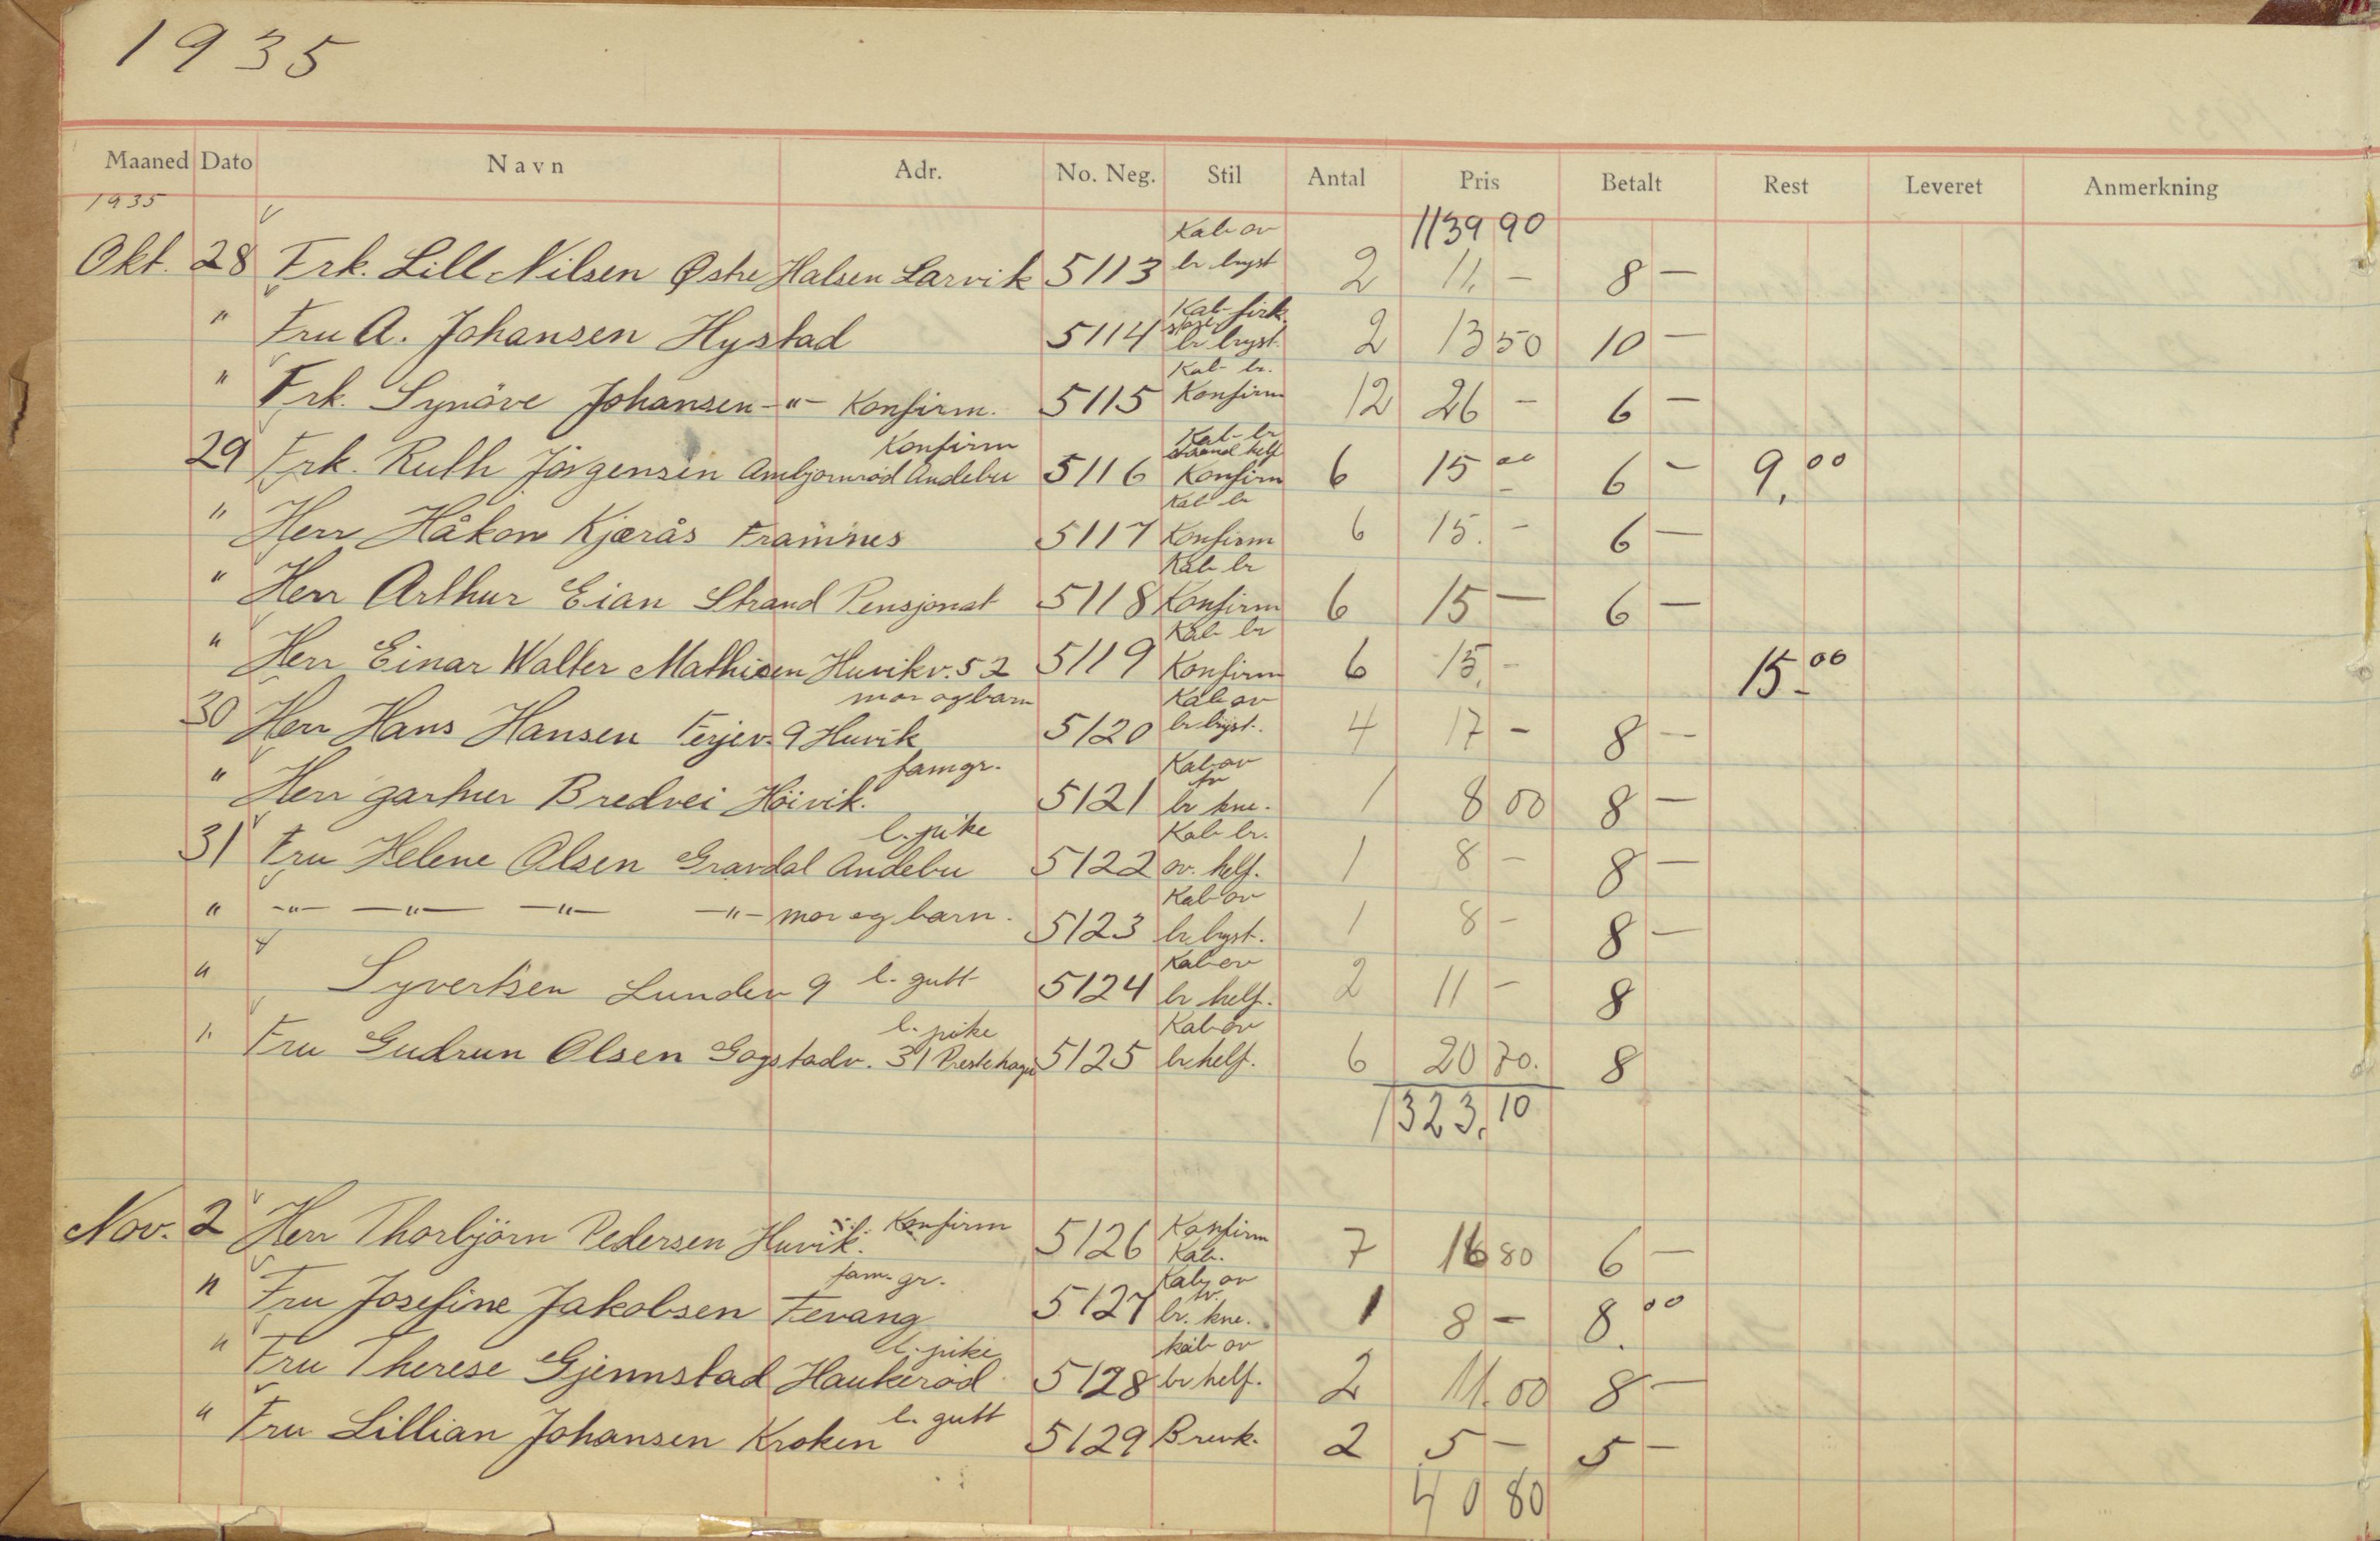 1935
Maaned Dato Navn Adr. No. Neg. Stil Antal Pris Betalt Rest Leveret Anmerkning
1935
1139 90
Kab ov
Okt. 28 Frk. Lill Nilsen Østre Halsen Larvik 5113 br bryst 2 11,- 8-
Kab- firk.
" Fru A. Johansen Hystad 5114 br bryst. 2 13 50 10-
Kab- br.
" Frk. Synöve Johansen -"- Konfirm. 5115 Konfirm 12 26- 6-
Konfirm Kab- br
helf
29 Frk. Ruth Jörgensen Ambjørnrød Andebu 5116 Konfirm 6 15 00 6- 9,00
Kab br
" Herr Håkon Kjærås Framnes 5117 Konfirm 6 15.- 6-
Kab br
" Herr Arthur Eian Strand Pensjonat 5118 Konfirm 6 15- 6-
Kab- br
" Herr Einar Walter Mathisen Huvikv. 52 5119 Konfirm 6 15,- 15.00
mor og barn Kab ov
30 Herr Hans Hansen Ferjev. 9 Huvik 5120 br bryst. 4 17- 8-
famgr. Kab ov
tv
" Herr gartner Bredvei Höivik. 5121 br kne. 1 8 00 8-
l. pike Kab br.
31 Fru Helene Olsen Gravdal Andebu 5122 ov. helf. 1 8- 8-
Kab ov
" -"- -"- -"- -"- mor og barn. 5123 br bryst. 1 8- 8-
Kab ov
" Syvertsen Lundev 9 l. gutt 5124 br helf. 2 11- 8
l. pike Kab ov
" Fru Gudrun Olsen Gogstadv. 31 Prestehagen 5125 br helf. 6 20 70. 8
1323,10
Nov. 2 Herr Thorbjörn Pedersen Huvik. Konfirm 5126 Konfirm 7 16 80 6-
Kab.
fam. gr. Kab ov
tv.
" Fru Josefine Jakobsen Fevang 5127 br. kne. 1 8- 8.00
l. pike kab ov
" Fru Therese Gjennstad Haukeröd 5128 br helf. 2 11.00 8-
l. gutt
" Fru Lillian Johansen Kroken 5129 Brevk. 2 5- 5-
40 80